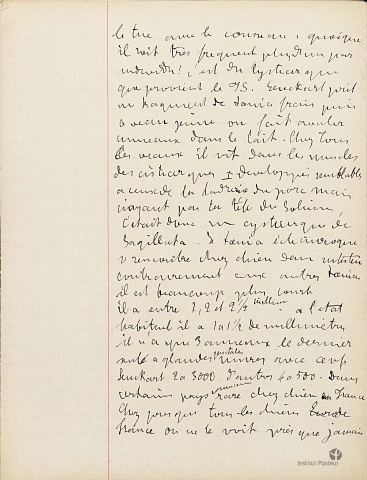 le tue avec le couteau, quoique
il soit très fréquent plus d'un par
individu ! c'est du cysticerque
que provient le T.S. Leuckart prit
un fragment de taenia frais puis
a veau jeune on fait avaler
anneaux dans le lait. Chez tous
les veaux il vit dans les muscles
des cisticerques développés semblables
à ceux de la ladrerie du porc mais
n'ayant pas la tête du Solium
c'était donc un cysticerque de
Sagillata. Taenia échinocoque
se rencontre chez chien dans intestin
contrairement aux autres taenias
il est beaucoup plus court
il a entre 1, 2 et 2 1/2 millim à l'état
habituel il a 1 à 1 1/2 de millimètres
il n'a que 3 anneaux le dernier
seul a glandes génitales mures avec œufs
Leuckart 2 à 3000 d'autres 4 à 500. Dans
certains pays rare chez chien en France
Chez presque tous les chiens
France on ne le voit presque jamais
Institut Pasteur